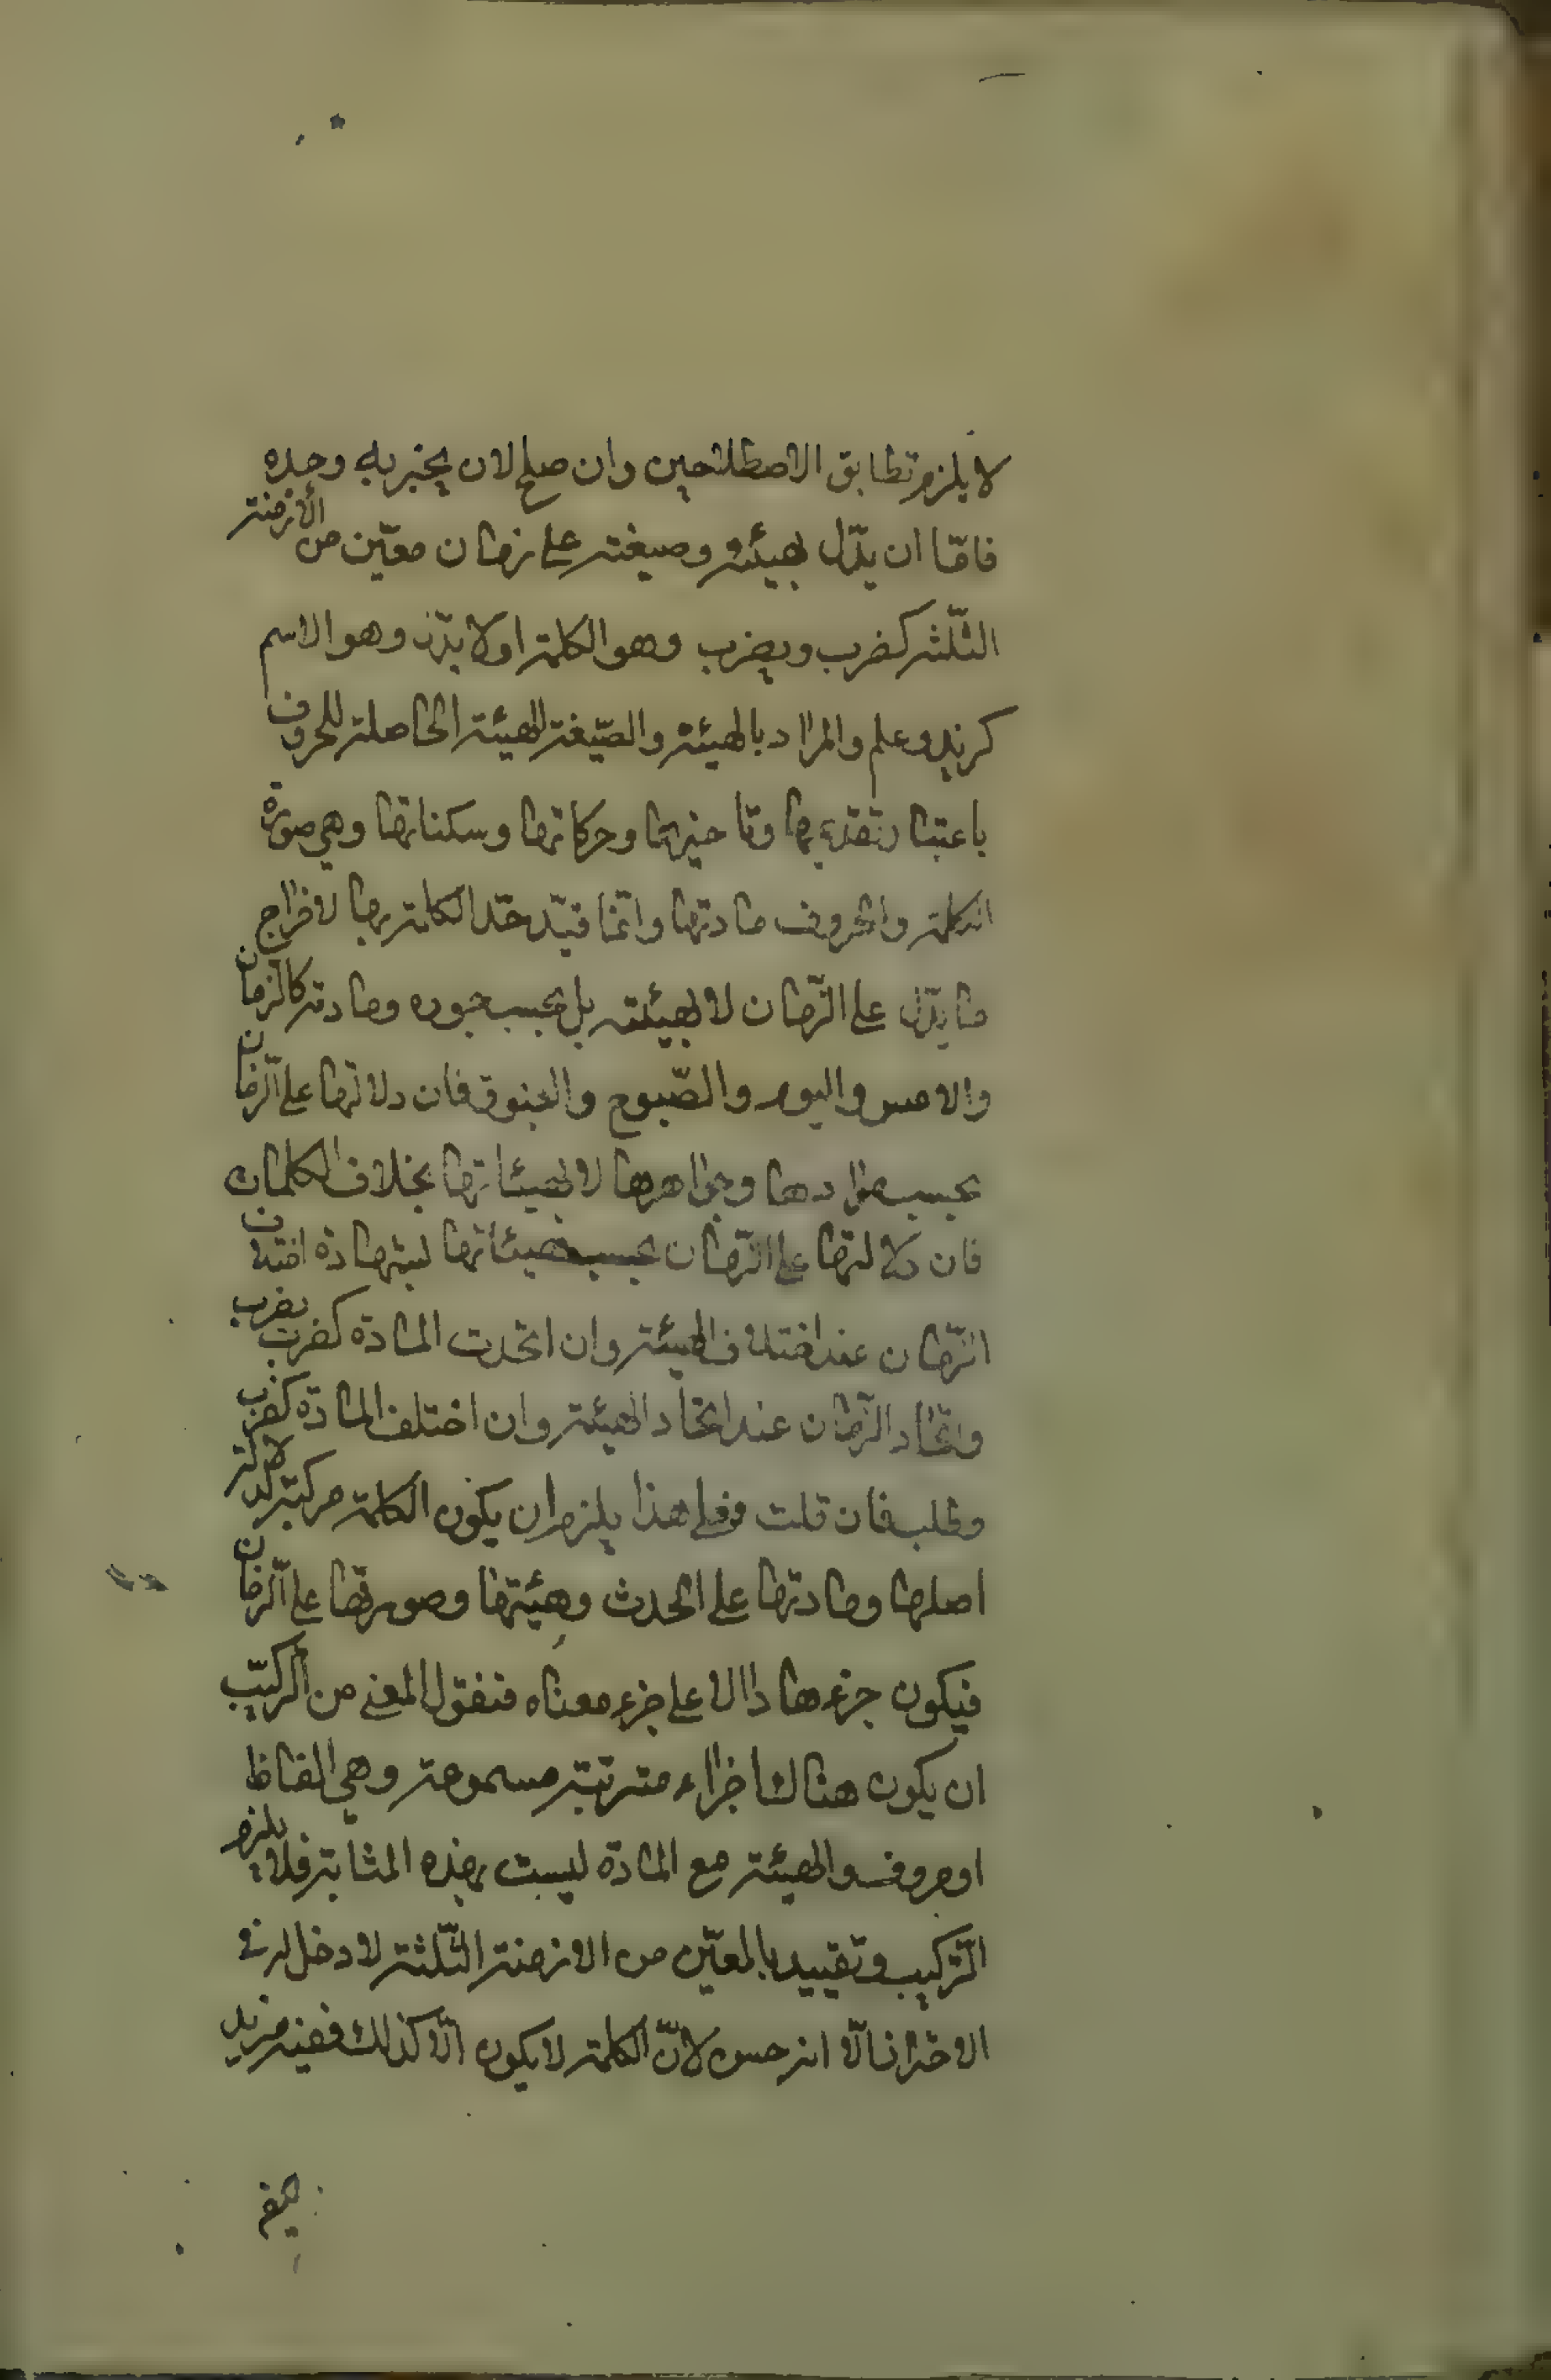 لا يلزم تطابق الاصطلاحين وان صلح لان يخبر به وحده
فامّا ان يدّل بهيئته وصيغته على زمان معيّن من الأزمنة
الثلثة كضرب ويضرب وهو الكلمة اولا يدّل وهو الاسم
كزيد وعلم والمراد بالهيئة والصّيغة الهيئة الحاصلة للحروف
باعتبار تقديمها وتاخيرها وحركاتها وسكناتها وهي صورة
الكلمة والحروف مادتها وانّما قيّد حدّ الكلمة بها لاخراج
ما يدّل على الزّمان لا بهيئته بل بحسب جوره ومادته كالزمان
والامس واليوم والصّبوح والغبوق فان دلالتها على الزّمان
بحسب موادها وجواهرها لا بهيئاتها بخلاف الكلمات
فان دلالتها على الزّمان بحسب هيئاتها اختلاف
الزّمان عند اختلاف الهيئة وان اتحدت المادة كضرب يضرب
واتحاد الزّمان عند اتحاد الهيئة وان اختلف المادّة كضرب
وطلب فان قلت فعلى هذا يلزم ان يكون الكلمة مركبة لدلالة
اصلها ومادتها على الحدث وهيئتها وصورتها على الزّمان
فيكون جزءها دالا على جزء معناه فنقول المعنى من التركيب
ان يكون هناك اجزاء مترتبة مسموعة وهي الفاظ
او حروف والهيئة مع المادة ليست بهذه المثابة فلا يلزم
التّركيب وتقييد بالمعيّن من الازمنة الثّلثة لا دخل له في
الاحتراز الّا انه حسن لانّ الكلمة لا يكون الّا كذلك ففيه مزيد